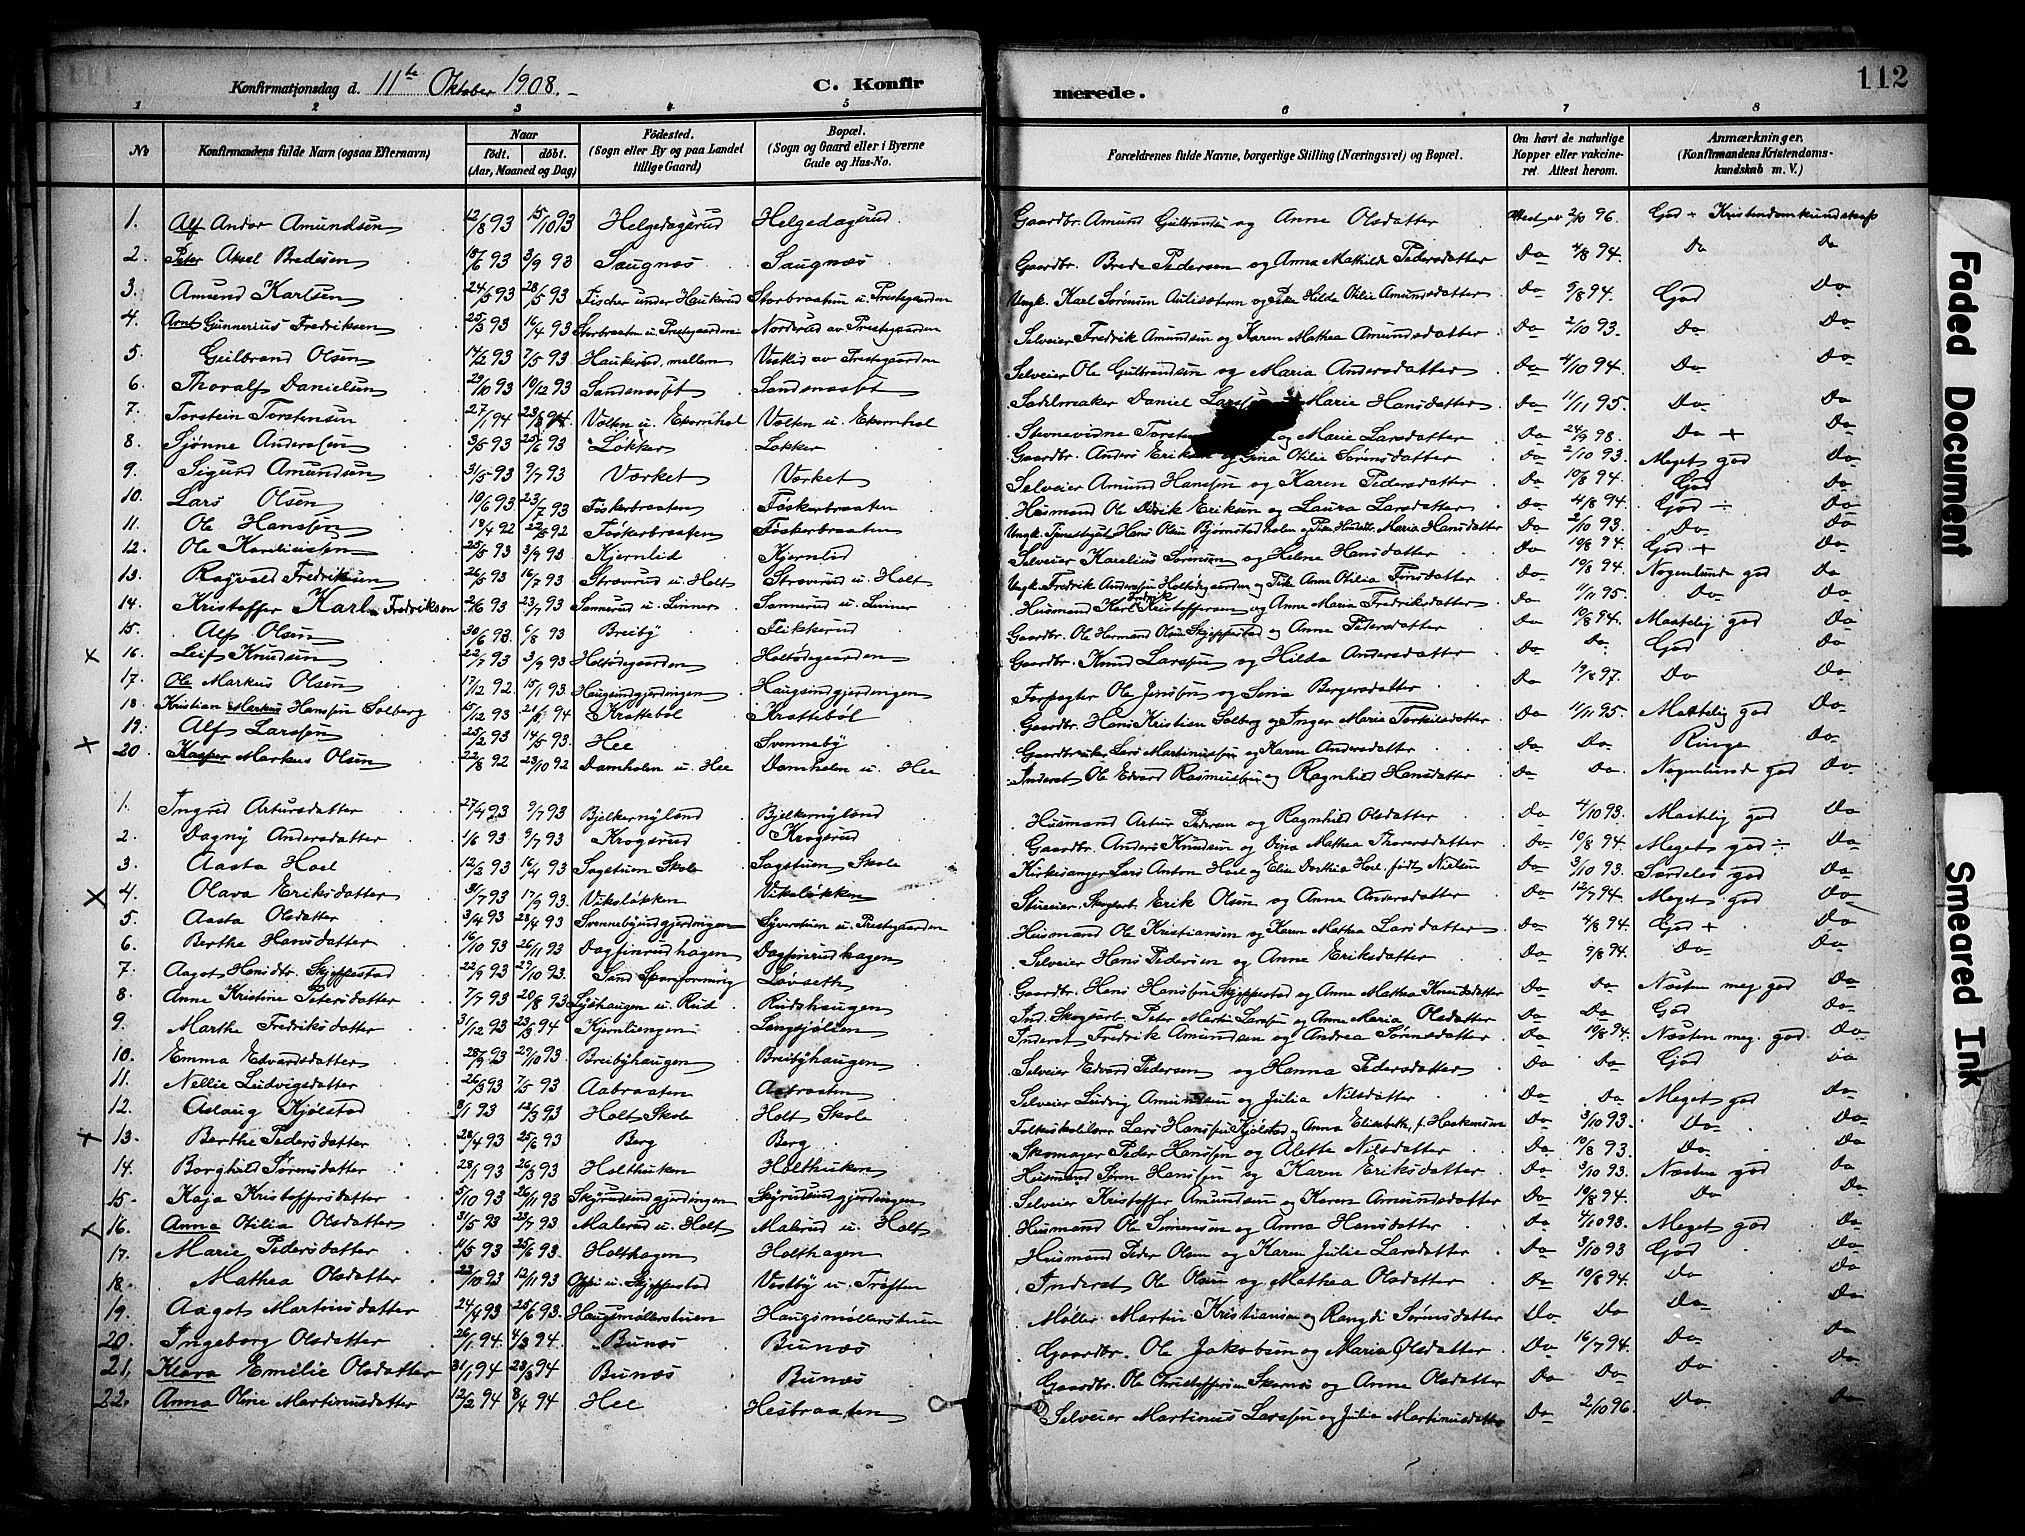 112
Konfirmationsdag d. 11te Oktober 1908. C. Konfirmerede.
1 2 3 4 5 6 7 8
No Konfirmandens fulde Navn (ogsaa Efternavn) Naar født. døbt. (Aar, Maaned og Dag) Fødested. (Sogn eller By og paa Landet tillige Gaard) Bopæl. (Sogn og Gaard eller i Byerne Gade og Hus-No. Forældrenes fulde Navne, borgerlige Stilling (Næringsvei) og Bopæl. Om havt de naturlige Kopper eller vakcineret. Attest herom. Anmærkninger. (Konfirmandens Kristendomskundskab m. V.)
1. Alf Andor Amundsen 12/8 93 15/10 93 Helgedagsrud Helgedagsrud Gaardbr. Amund Gulbrandsen og Anne Olsdatter Attest av 2/10 96. God + Kristendomskundskap
2. Peter Aksel Bredesen 18/6 93 3/9 93 Saugnæs Saugnæs Gaardbr. Brede Pedersen og Anna Mathilde Pedersdatter Do 4/8 94. Do Do
3. Amund Karlsen 24/5 93 28/5 93 Fischer under Haukerud Storbraaten u. Prestegaarden Ungk. Karl Sørensen og Pike Hilda Otilie Amundsdatter Do 9/8 94. God Do
4. Arnt Gunnerius Fredriksen 25/3 93 16/4 93 Storbraaten u. Prestegaarden Norderud av Prestegaarden Selveier Fredrik Amundsen og Karen Mathea Amundsdatter Do 2/10 93. Do Do
5. Gulbrand Olsen 14/2 93 7/5 93 Haukerud, mellem Vestlid av Prestegaarden Selveier Ole Gulbrandsen og Maria Andersdatter Do 4/10 94. Do Do
6. Thoralf Danielsen 29/10 93 10/12 93 Sandsnæsset Sandsnæsset Sadelmaker Daniel Larssen Marie Hansdatter Do 11/11 95. Do Do
7. Torstein Torstensen 27/1 94 23/3 94 Volten u. Ekornhol Volten u. Ekornhol Stevnevidne Torsten og Marie Larsdatter Do 24/9 98. Do + Do
8. Sjønne Anderssen 3/5 93 25/6 93 Løkker Løkker Gaardbr. Anders Eriksen og Gina Otilie Sørensdatter Do 2/10 93. Meget god Do
9. Sigurd Amundsen 31/5 93 9/7 93 Værket Værket Selveier Amund Hanssen og Karen Pedersdatter Do 10/8 94. God Do
10. Lars Olsen 10/6 93 23/7 93 Føskerbraaten Føskerbraaten Husmand Ole Eriksen og Laura Larsdatter Do 4/8 94. God ÷ Do
11. Ole Hanssen 18/4 92 22/5 92 Føskerbraaten Føskerbraaten Ungk. Tjenestegut Hans Olsen Bjørnstad og Pike Maria Hansdatter Do 2/10 93. Do Do
12. Ole Kareliussen 25/5 93 3/9 93 Kjernlid Kjernlid Selveier Karelius Sørensen og Helene Hansdatter Do 10/8 94. God + Do
13. Ragvald Fredriksen 26/5 93 16/7 93 Strovrud u. Holt Strovrud u. Holt Ungk. Fredrik Anderssen Holtødegaarden og Pike Anne Otilia Finsdatter Do 10/8 94. Nogenlunde god Do
14. Kristoffer Karl Fredriksen 2/6 93 23/7 93 Sannerud u. Linner Sannerud u. Linner Husmand Karl Fredrik Kristoffersen og Anne Maria Fredriksdatter Do 11/11 95. Do Do
15. Alf Olsen 30/6 93 6/8 93 Breiby Flikkerud Gaardbr. Ole Herman Olsen Skjeppestad og Anne Pedersdatter Do 10/8 94. Maatelig god Do
x 16. Leif Knudsen 22/7 93 3/9 93 Holtødegaarden Holtødegaarden Gaardbr. Knud Larssen og Hilda Andersdatter Do Do. God Do
17. Ole Markus Olsen 17/12 92 15/1 93 Haugsindgjerdingen Haugsindgjerdingen Forpagter Ole Jenssen og Sena Bergersdatter Do 19/8 97. Do Do
18 Kristian Markus Hanssen Solberg 15/12 93 21/1 94 Krattebøl Krattebøl Gaardbr. Hans Kristian Solberg og Inger Marie Torkilsdatter Do 11/11 95. Maatelig god Do
19. Alf Larssen 25/2 93 14/5 93 Hee Svenneby Gaardbruker Lars Martinussen og Karen Andersdatter Do Do. Ringe Do
x 20. Kasper Markus Olsen 22/8 92 23/10 92 Damholen u. Hee Damholen u. Hee Inderst Ole Edvard Rasmussen og Ragnhild Hansdatter Do Do. Nogenlunde god Do
1. Ingrid Artursdatter 27/4 93 9/7 93 Bjelkernyland Bjelkernyland Husmand Artur Pedersen og Ragnhild Olsdatter Do 4/10 93. Maatelig god Do
2. Dagny Andersdatter 1/6 93 9/7 93 Krogsrud Krogsrud Gaardbr. Anders Knudsen og Dina Mathea Thorersdatter Do 10/8 94. Meget god ÷ Do
3. Aasta Hoel 12/2 93 16/4 93 Sagstuen Skole Sagstuen Skole Kirkesanger Lars Anton Hoel og Elise Dorthea Hoel født Nielsen Do 3/10 93. Særdeles god Do
x 4. Olava Eriksdatter 31/7 93 17/9 93 Viksløkken Viksløkken Stueeier, Skogarb. Erik Olsen og Anne Andersdatter Do 12/7 94. Meget god Do
5. Aasta Olsdatter 3/4 93 23/4 93 Svennebyindgjerdingen Syverstuen u. Prestegaarden Husmand Ole Kristiansen og Karen Mathea Larsdatter Do 4/8 94. God + Do
6. Berthe Hansdatter 16/10 93 26/11 93 Dagfinrudhagen Dagfinrudhagen Selveier Hans Pedersen og Anne Eriksdatter Do 9/8 94. Do Do
7. Aagot Hansdtr. Skjeppestad 22/9 93 29/10 93. Sand Løvseth Gaardbr. Hans Hanssen Skjeppestad og Anne Mathea Knudsdatter Do Do Næsten meg. god Do
8. Anne Kristine Petersdatter 7/7 93 20/8 93 Lyshaugen u. Rud Rudshaugen Ind. Skogarb. Peter Martin Larssen og Anne Maria Olsdatter Do Do God Do
9. Marthe Fredriksdatter 31/12 93 23/3 94 Kjernliengen Langsjølien Inderst Fredrik Amundsen og Andrea Sørensdatter Do 10/8 94. Næsten meg. god Do
10. Emma Edvardsdatter 28/9 93 29/10 93 Breibyhaugen Breibyhaugen Selveier Edvard Pedersen og Hanna Pedersdatter Do Do God Do
11. Nellie Ludvigsdatter 26/3 93 7/5 93 Aabraaten Aabraaten Selveier Ludvig Amundsen og Julia Nilsdatter Do Do. Meget god Do
12. Aslaug Kjølstad 8/1 93 12/3 93 Holt Skole Holt Skole Folkeskolelærer Lars Hanssen Kjølstad og Anna Elisabeth, f. Haakensen Do 3/10 93. Do Do
x 13. Berthe Pedersdatter 28/4 93 25/6 93 Berg Berg Skomager Peder Hanssen og Alette Nilsdatter Do 10/8 93. Do Do
14. Borghild Sørensdatter 28/1 93 26/3 93 Holthuken Holthuken Husmand Søren Hanssen og Karen Eriksdatter Do 3/10 93. Næsten god Do
15. Kaja Kristoffersdatter 5/10 93 26/11 93 Skyrudsindgjerdingen Skyrudsindgjerdingen Selveier Kristoffer Amundsen og Karen Amundsdatter Do 10/8 94. Do Do
x 16. Anna Otilia Olsdatter 31/5 93 23/7 93 Malerud u. Holt Malerud u. Holt Husmand Ole Simensen og Anna Hansdatter Do 4/10 93. Meget god Do
17. Marie Pedersdatter 11/5 93 25/6 93 Holthagen Holthagen Husmand Peder Olsen og Karen Julie Larsdatter Do 3/10 93 God Do
18. Mathea Olsdatter 22/10 93 12/11 93 u. Skjeppestad Vestby u. Trøften Inderst Ole Olsen og Mathea Olsdatter Do 10/8 94. Do Do
19. Aagot Martinsdatter 24/4 93 25/6 93. Haugsmøllerstuen Haugsmøllerstuen Møller Martin Kristiansen og Rangdi Sørensdatter Do Do Do Do
20. Ingeborg Olsdatter 26/1 94 4/3 94 Bunæs Bunæs Gaardbr. Ole Jakobsen og Maria Olsdatter Do 16/7 94. Do Do
21. Klara Emilie Olsdatter 31/1 94 23/3 94 Bunæs Bunæs Gaardbr. Ole Christoffersen Skarnæs og Anne Olsdatter Do Do Do Do
22. Anna Oline Martinusdatter 12/2 94 8/4 94 Hee Hesbraaten Selveier Martinus Larssen og Julie Martinusdatter Do 2/10 96. Do Do
Faded Document
Smeared Ink